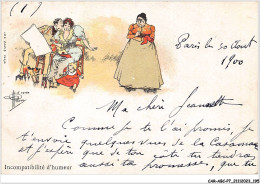 (1)
Paris le 30 Aout
1900
Ma chère Jeannette
Comme je te l'ai promis, je
t'envoie quelques vues de la
et j'espère que de ton côté tu tiendras
aussi ta promesse, que tu
Incompatibilité d'humeur